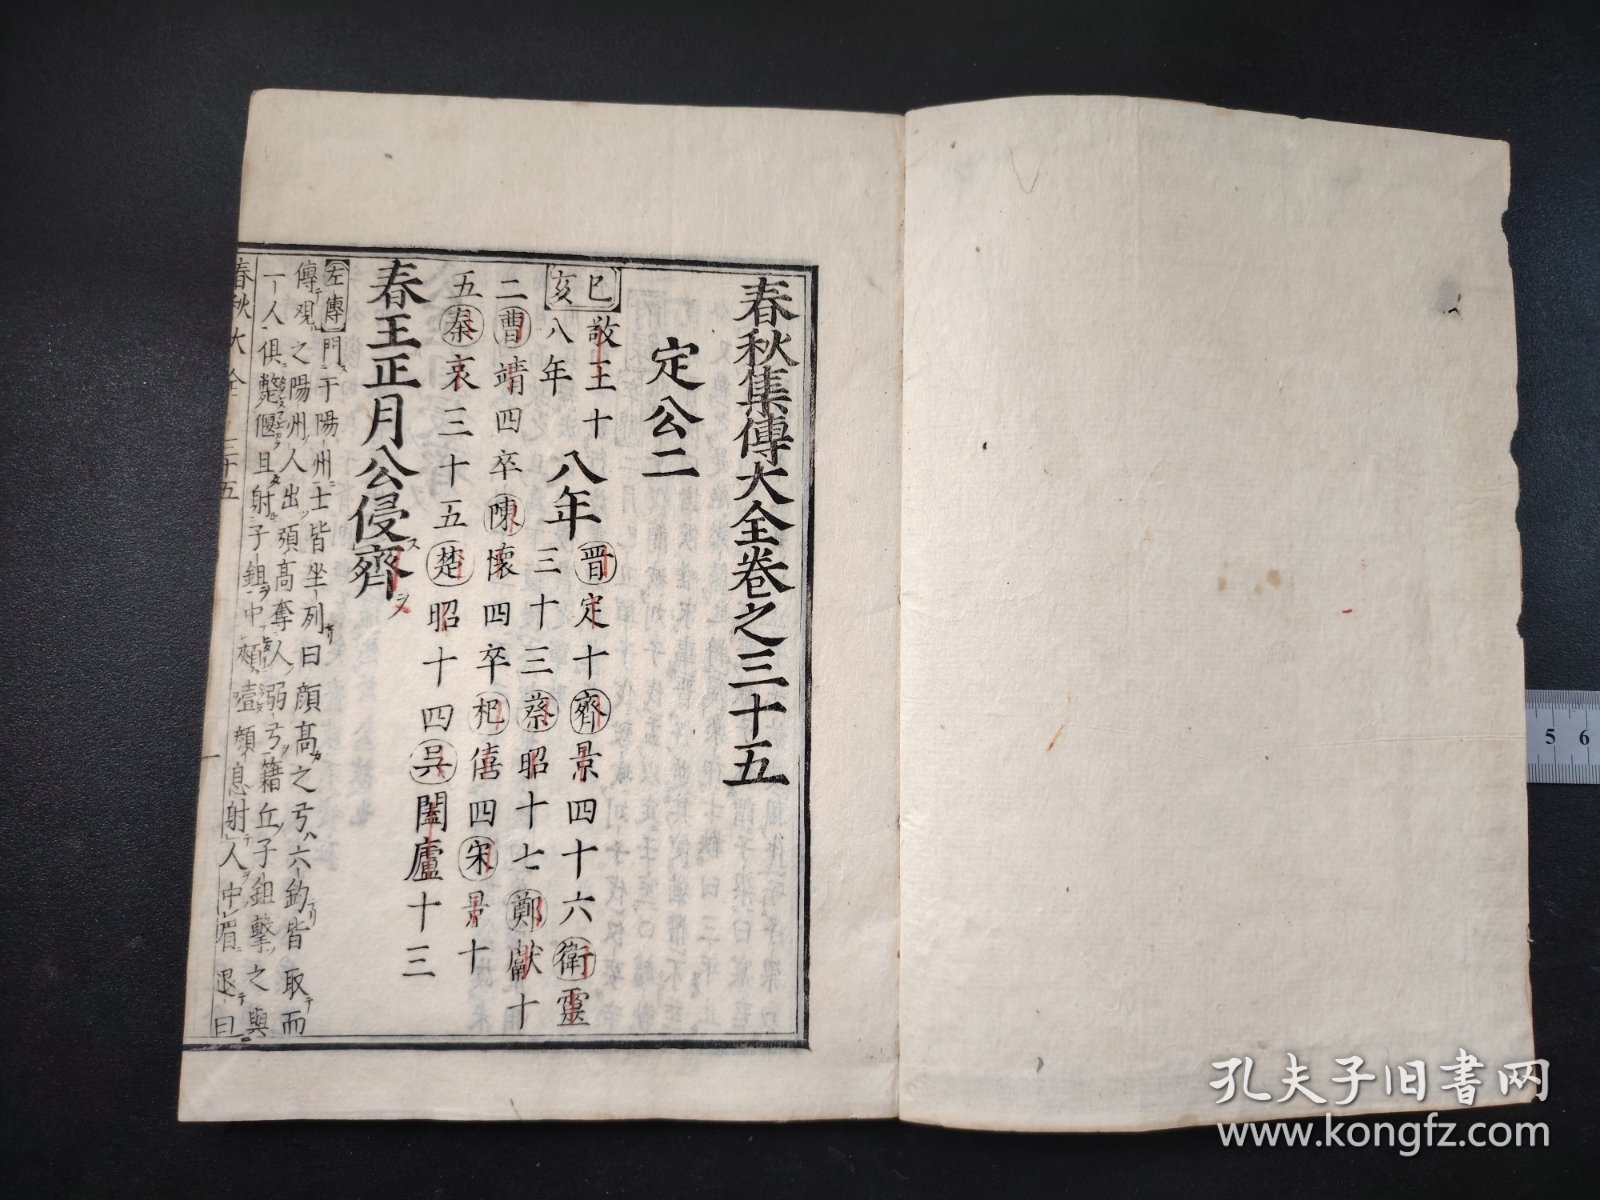 春秋集傳大全卷之三十五
定公二
己亥 敬王十八年 八年 晉定十齊景四十六衛靈
三十三蔡昭十七鄭獻十
二曹靖四卒陳懷四卒杞僖四宋景十
五秦哀三十五楚昭十四吳闔廬十三
春王正月公侵齊
左傳門于陽州士皆坐列曰顏高之弓六鈞皆取而
傳觀之陽州人出顏高奪人弱弓籍丘子鉏擊之與
一人俱斃偃且射子鉏中頰殪顏息射人中眉退曰
春秋大全 三十五 一
5 6
孔夫子旧书网
www.kongfz.com